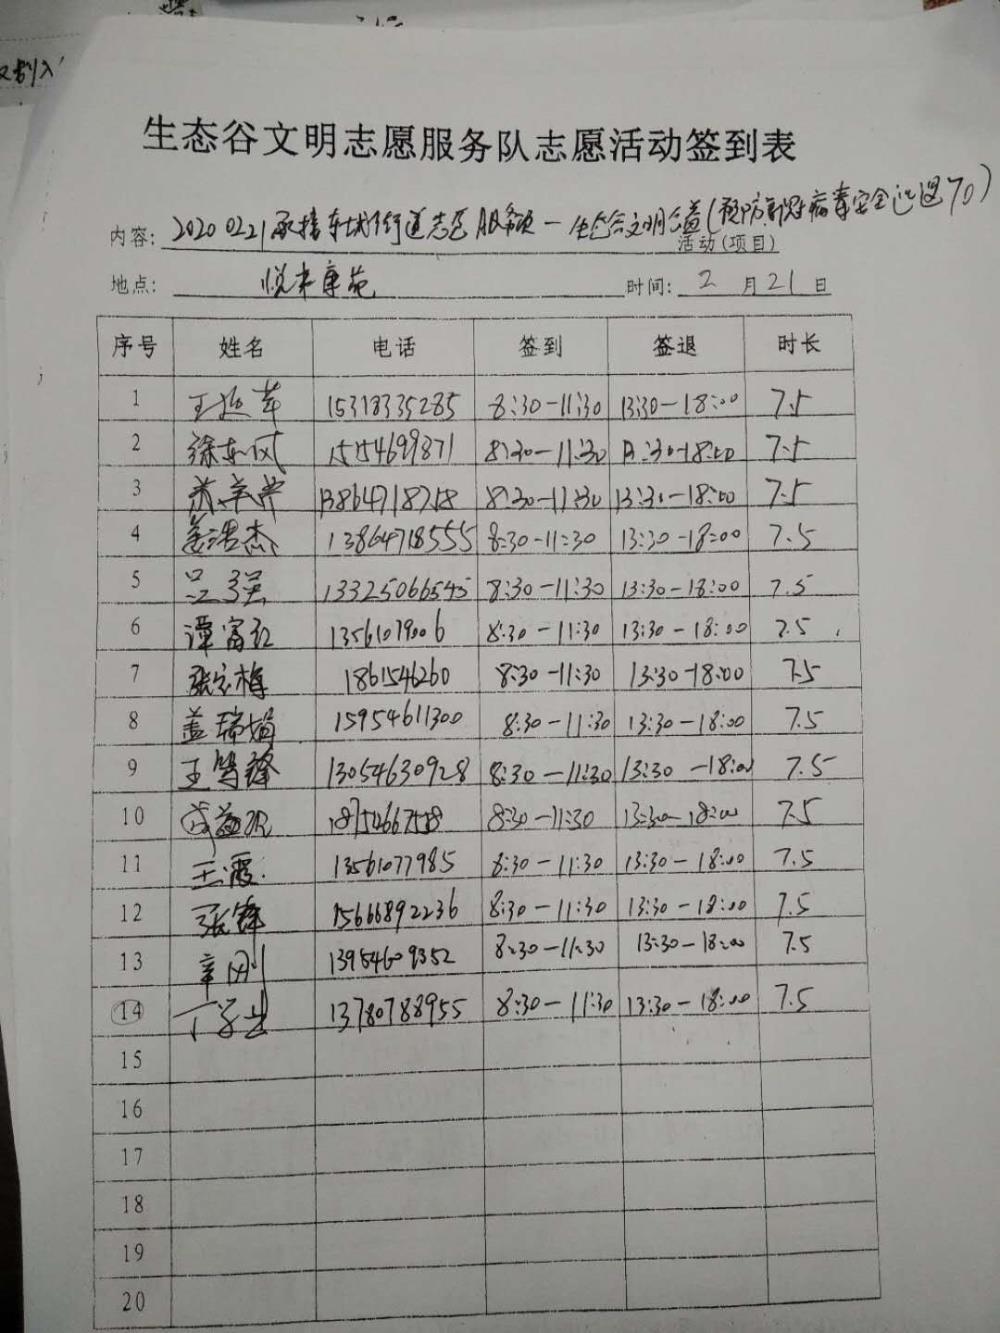 生态谷文明志愿服务队志愿活动签到表
内容: 20200221承接东城街道志区服务 一生态谷文明公益(预防新冠病毒安全 70)
活动(项目)
地点: 悦来康苑 时间: 2 月 21 日
序号 姓名 电话 签到 签退 时长
1 王延苹 15318335285 8:30-11:30 13:30-18:00 7.5
2 徐东风 1554699871 8:30-11:30 13:30-18:00 7.5
3 8:30-11:30 13:30-18:00 7.5
4 姜浩杰 13864718555 8:30-11:30 13:30-18:00 7.5
5 吕强 13325066545 8:30-11:30 13:30-18:00 7.5
6 谭富红 13561079006 8:30-11:30 13:30-18:00 7.5
7 张宏梅 1861546260 8:30-11:30 13:30-18:00 7.5
8 盖瑞娟 15954611300 8:30-11:30 13:30-18:00 7.5
9 王笃锋 13054630928 8:30-11:30 13:30-18:00 7.5
10 8:30-11:30 13:30-18:00 7.5
11 王霞 13561077985 8:30-11:30 13:30-18:00 7.5
12 张锋 15666892236 8:30-11:30 13:30-18:00 7.5
13 章刚 13954609352 8:30-11:30 13:30-18:00 7.5
14 13780788955 8:30-11:30 13:30-18:00 7.5
15
16
17
18
19
20